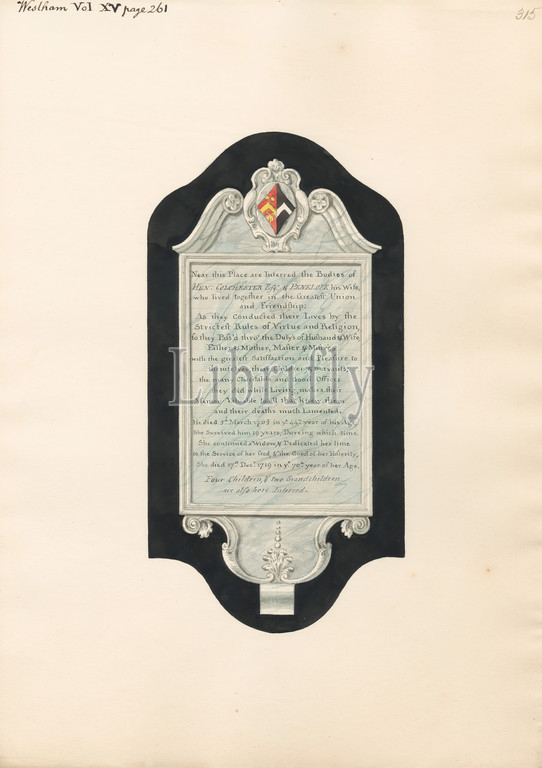 Westham Vol XV page 261
315
Near this Place are Interred the Bodies of
HEN: COLCHESTER Esq. & PENELOPE his Wife,
who lived together in the Greatest Union
and Friendship:
As they Conducted their Lives by the
Strictest Rules of Virtue and Religion,
so they Pass'd thro' the Dutys of Husband & Wife
Father & Mother, Master &
with the greatest Satisfaction and Pleasure to
Servants,
the many Charitable and Good Offices
they did whilst Living, makes their
all that knew them
and their deaths much Lamented.
He died 1st March in ye 44th year of his Age
She Survived him 19 years, Dureing which time
She continued a Widow, & Dedicated her time
to the Service of her God, & the Good of her Posterity,
She died 17th Decr. 1719 in ye 70th year of her Age.
Four Children, & two Grandchildren
are also here Interred.
Librifly